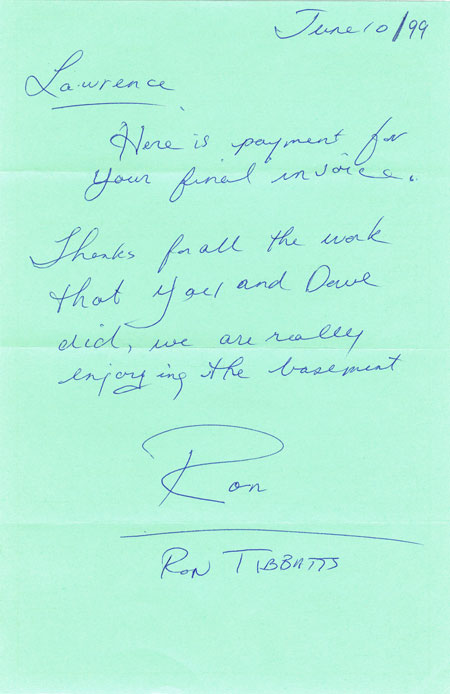 June 10/99
Lawrence
Here is payment for
your final invoice.
Thanks for all the work
that you and Dave
did, we are really
enjoying the basement
Ron
RON TIBBATTS